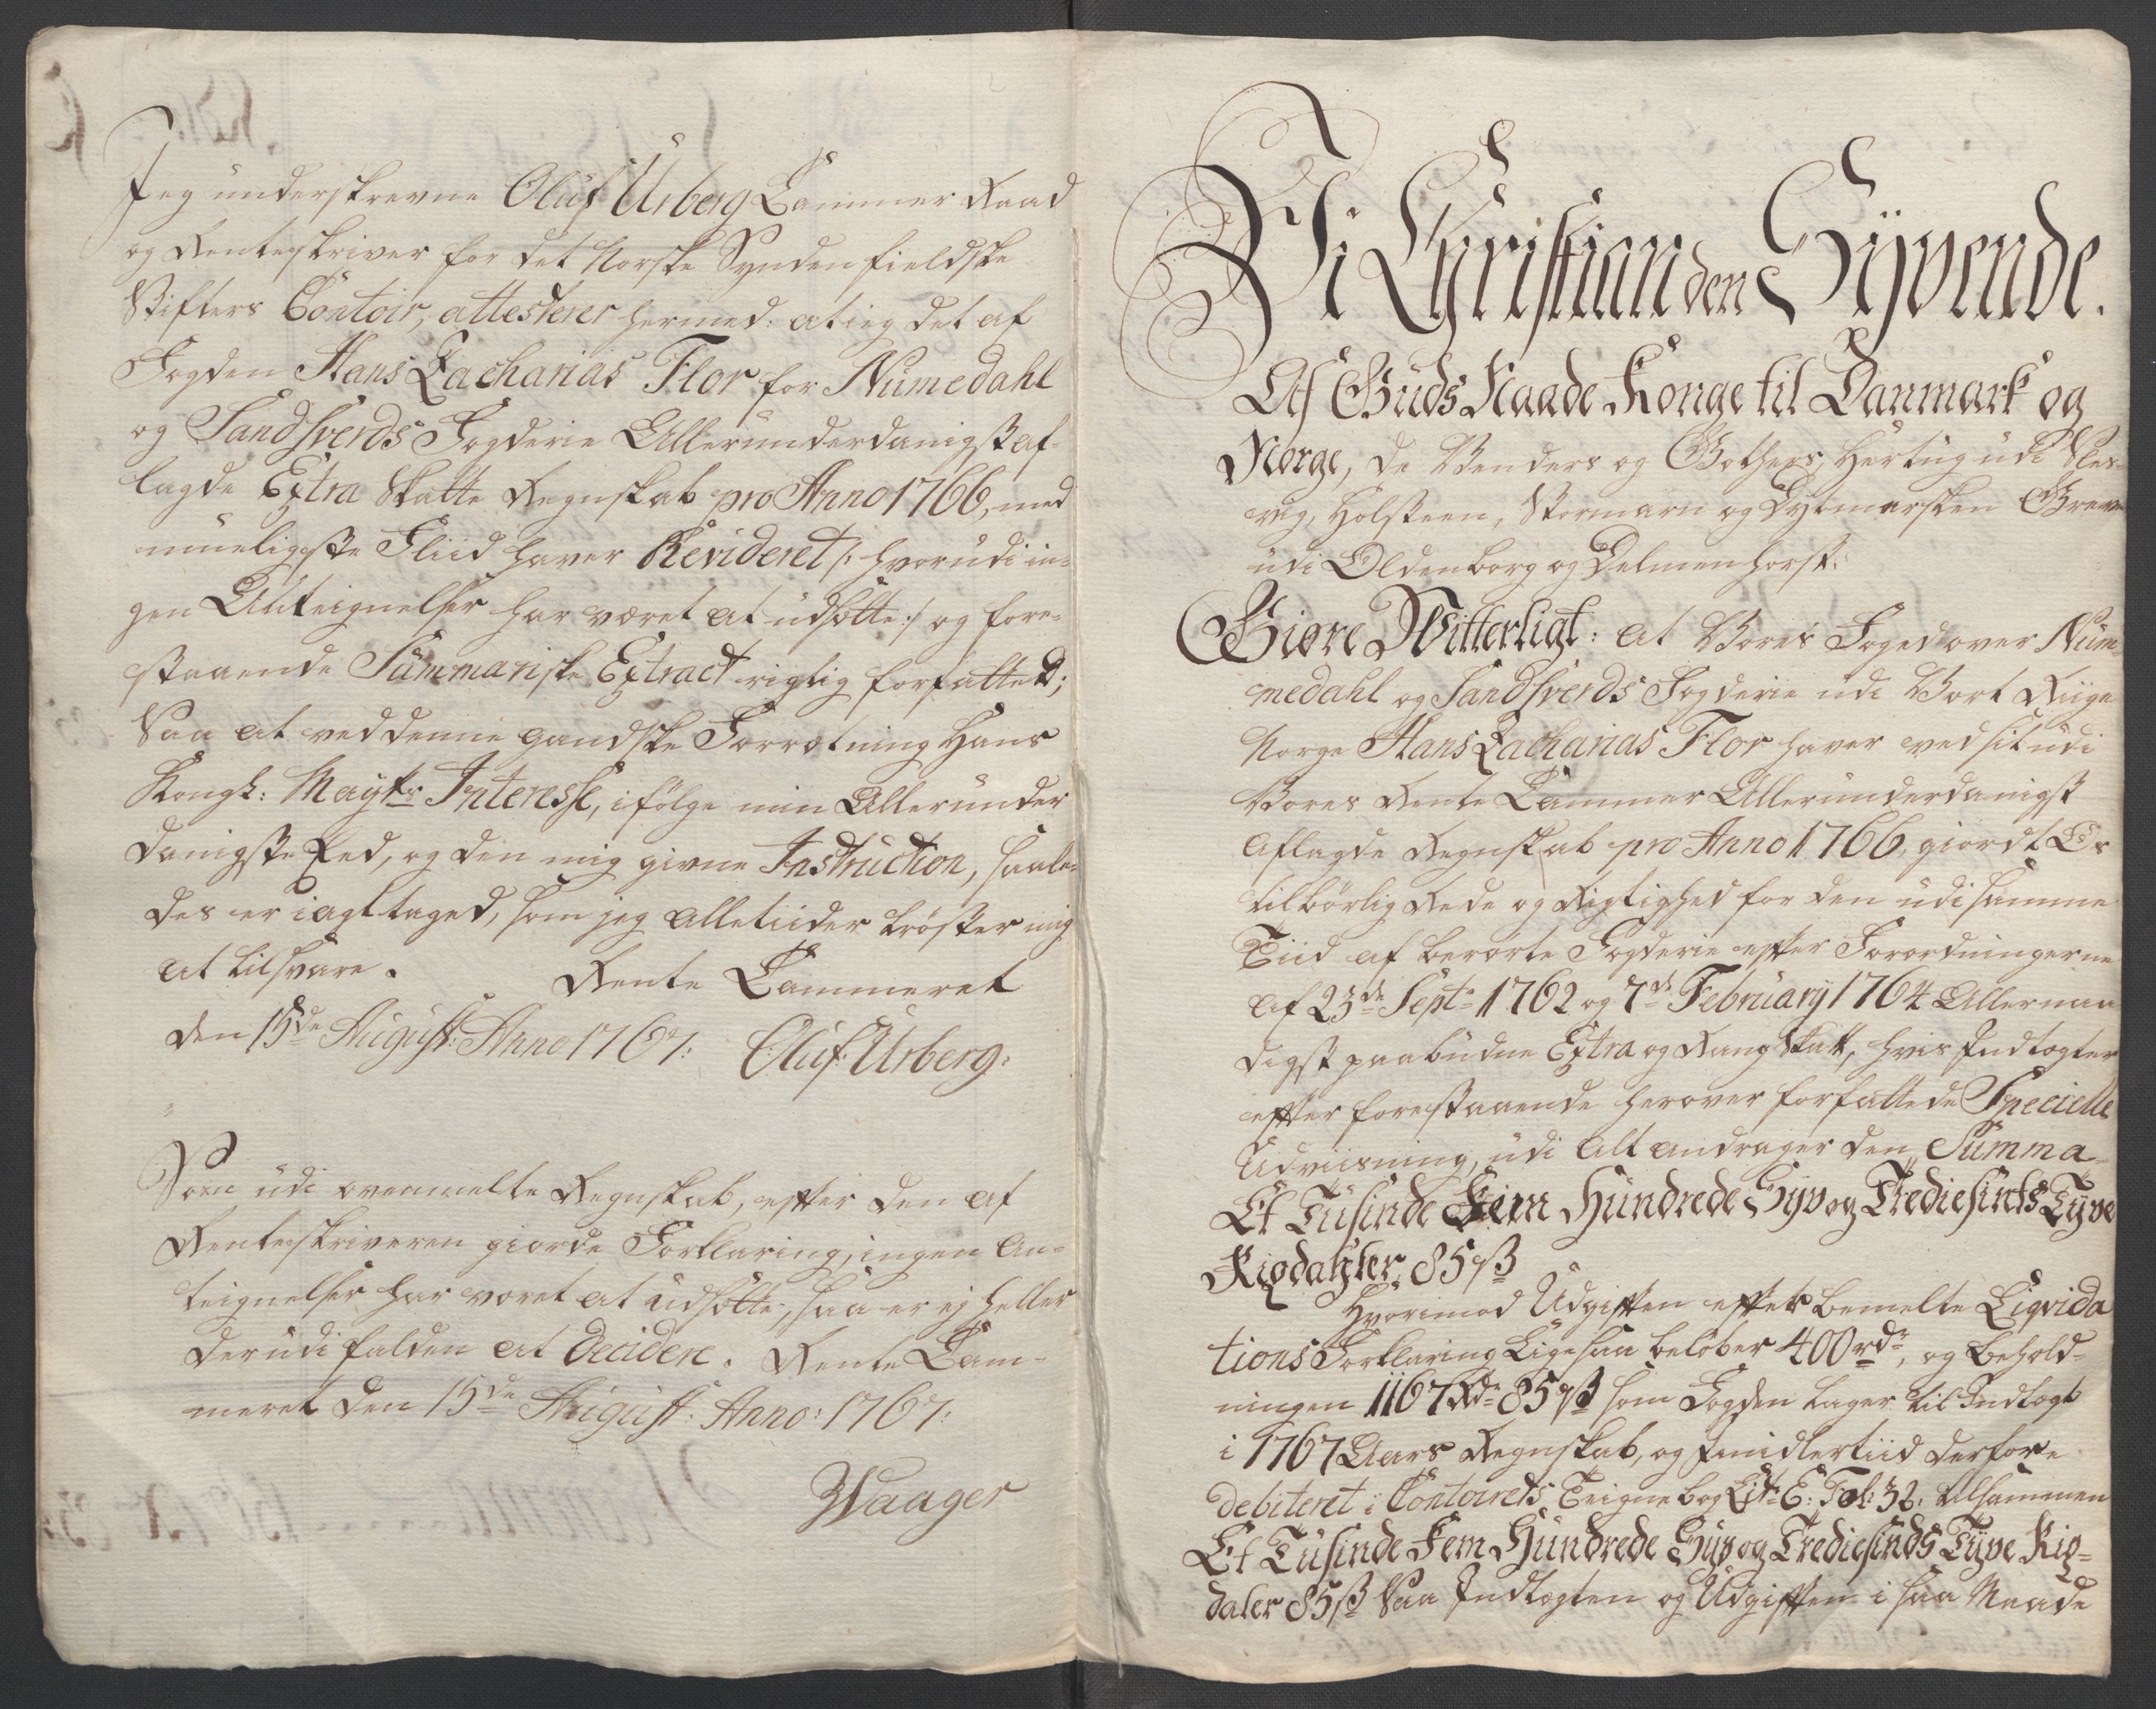 Jeg underskrevne Oluf Urberg Cammer Raad
og Renteskriver for det Norske Syndenfieldske
Stifters Contoir, attesterer hermed: at jeg det af
Fogden Hans Zacharias Flor for Numedahl
og Sandsverds Fogderie Allerunderdanigst af-
lagde Extra Skatte Regnskab pro Anno 1766, med
mueligste Fliid haver Revideret /: hvorudi in-
gen Anteignelser har været at udsætte :/ og fore-
staaende Summariske Extract rigtig forfatted;
Saa at ved denne gandske Forretning Hans
Kongl: Mayts Interesse, ifölge min Allerunder
danigste Eed, og den mig givne Instruction, saale-
des er iagttaged, som jeg alletiider tröster mig
at tilsvare. Rente Cammeret
den 15de August: Anno 1767: Oluf Urberg:
Som udi ovenmelte Regnskab, efter den af
Renteskriveren giorde Forklaring, ingen An-
teignelser har været at udsætte, saa er ej heller
derudi falden at decidere. Rente Cam-
meret den 15de August: Anno: 1767:
Waager
Vi Christian den Syvende.
Af Guds Naade Konge til Danmark og
Norge, de Venders og Gothers, Hertug udi Sles-
vig, Holsteen, Stormarn og Dytmarsken Greve
udi Oldenborg og Delmenhorst:
Giøre Vitterligt: at Vores Foged over Num-
medahl og Sandsverds Fogderie udi Vort Riige
Norge Hans Zacharias Flor haver ved sit udi
Vores Rente Cammer Allerunderdanigst
aflagde Regnskab pro Anno 1766, giordt Os
tilbörlig Rede og Rigtighed for den udi samme
Tiid af berörte Fogderie efter Forordningerne
af 23de Septr 1762 og 7de February 1764 Allernaa
digst paabudne Extra og Rang Skatt, hvis Indtægter
efter forestaaende herover forfattede Specielle
Udviisning, udi alt andrager den Summa
Et Tusinde Fem Hundrede Syv og Trediesinds Tyve
Rigsdahler 85 ß
Hvorimod Udgiften efter bemelte Liqvida
tions Forklaring Ligesaa belöber 400 rdr, og Behold-
ningen 1167 Rdr 85 ß som Fogden tager til Indtægt
i 1767 Aars Regnskab, og imidlertiid derfore
debiteret i Contoirets Teignebog Litr E: Fol: 32. tilsammen
Et Tusinde Fem Hundrede Syv og Trediesinds Tyve Rig-
daler 85 ß Saa Indtægten og Udgiften i saa Maade